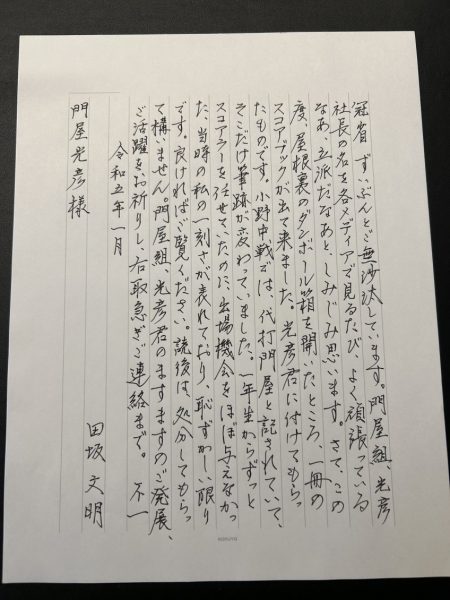 冠省 ずいぶんとご無沙汰しています。門屋組、光彦
社長の名を各メディアで見るたび、よく頑張っている
なあ、立派だなあと、しみじみ思います。さて、この
度、屋根裏のダンボール箱を開いたところ、一冊の
スコアブックが出て来ました。光彦君に付けてもらっ
たものです。小野中戦では、代打門屋と記されていて、
そこだけ筆跡が変わっていました。一年生からずっと
スコアラーを任せていたのに、出場機会をほぼ与えなかっ
た、当時の私の一刻さが表れており、恥ずかしい限り
です。良ければご覧ください。読後は、処分してもらっ
て構いません。門屋組、光彦君のますますのご発展、
ご活躍をお祈りし、右取急ぎご連絡まで。 不一
令和五年一月
田坂文明
門屋光彦様